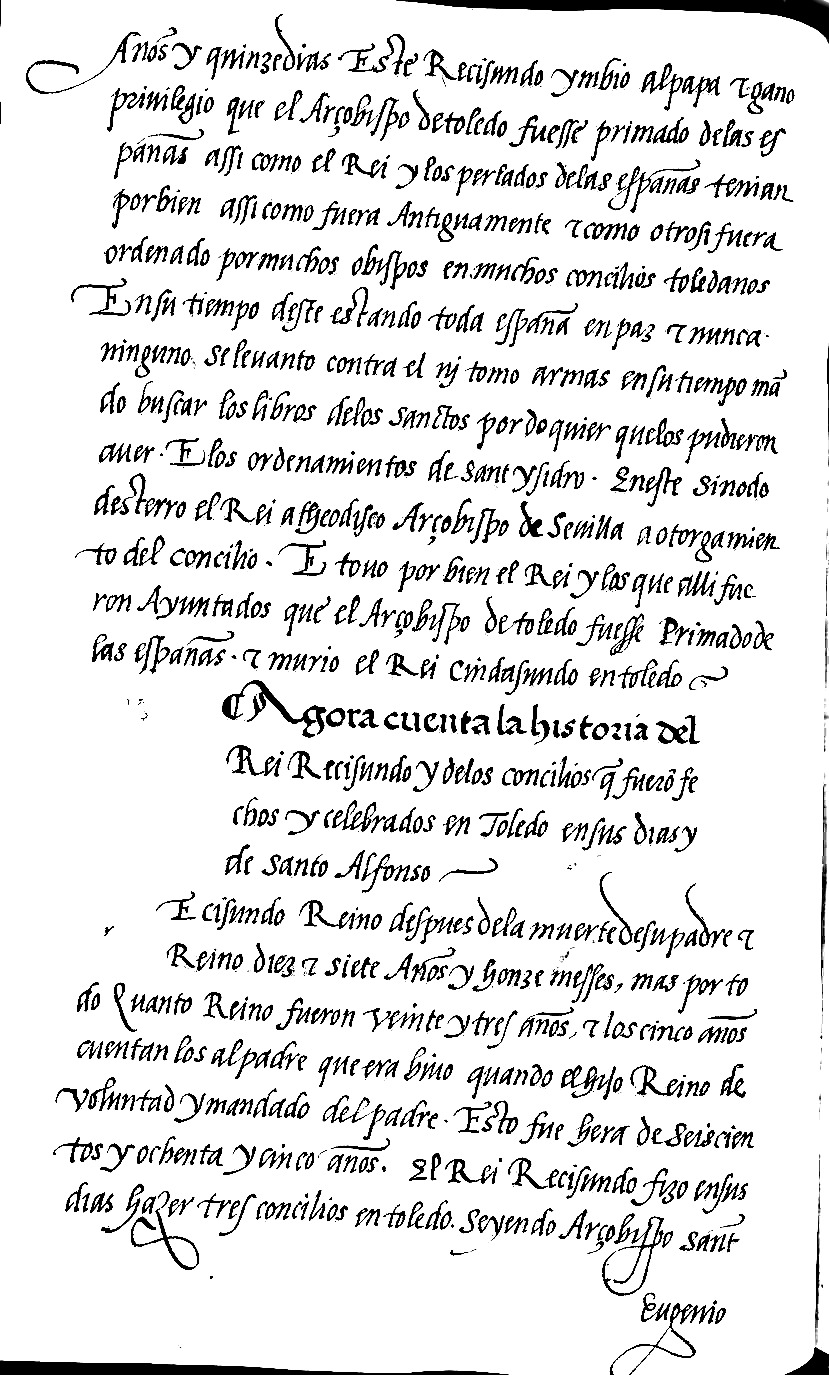 Años y quinze dias. Este Recisundo ymbio al papa τ gano
privilegio que el Arçobispo de toledo fuesse primado de las es
pañas assi como el Rei y los perlados de las españas tenian
por bien assi como fuera Antiguamente τ como otrosi fuera
ordenado por muchos obispos en muchos concilios toledanos
En su tiempo deste estando toda españa en paz τ nunca
ninguno se leuanto contra el nj tomo armas en su tiempo mã
do buscar los libros delos sanctos por do quier que los pudieron
auer. E los ordenamientos de sant ysidro. Eneste sinodo
desterro el Rei a theodisco Arçobispo de Sevilla a otorgamien
to del concilio. E touo por bien el Rei y los que alli fue
ron Ayuntados que el Arçobispo de toledo fuesse Primado de
las españas. τ murio el Rei Cindasundo en toledo
Agora cuenta la historia del
Rei Recisundo y delos concilios q̃ fuerõ fe
chos y celebrados en Toledo en sus dias y
de Santo Alfonso
Ecisundo Reino despues dela muerte de su padre τ
Reino diez τ siete Años y honze messes, mas por to
do Quanto Reino fueron veinte y tres años, τ los cinco años
cuentan los al padre que era biuo quando el hijo Reino de
voluntad y mandado del padre. Esto fue hera de seiscien
tos y ochenta y cinco años. El Rei Recisundo fizo en sus
dias hazer tres concilios en toledo. Seyendo Arçobispo sant
Eugenio